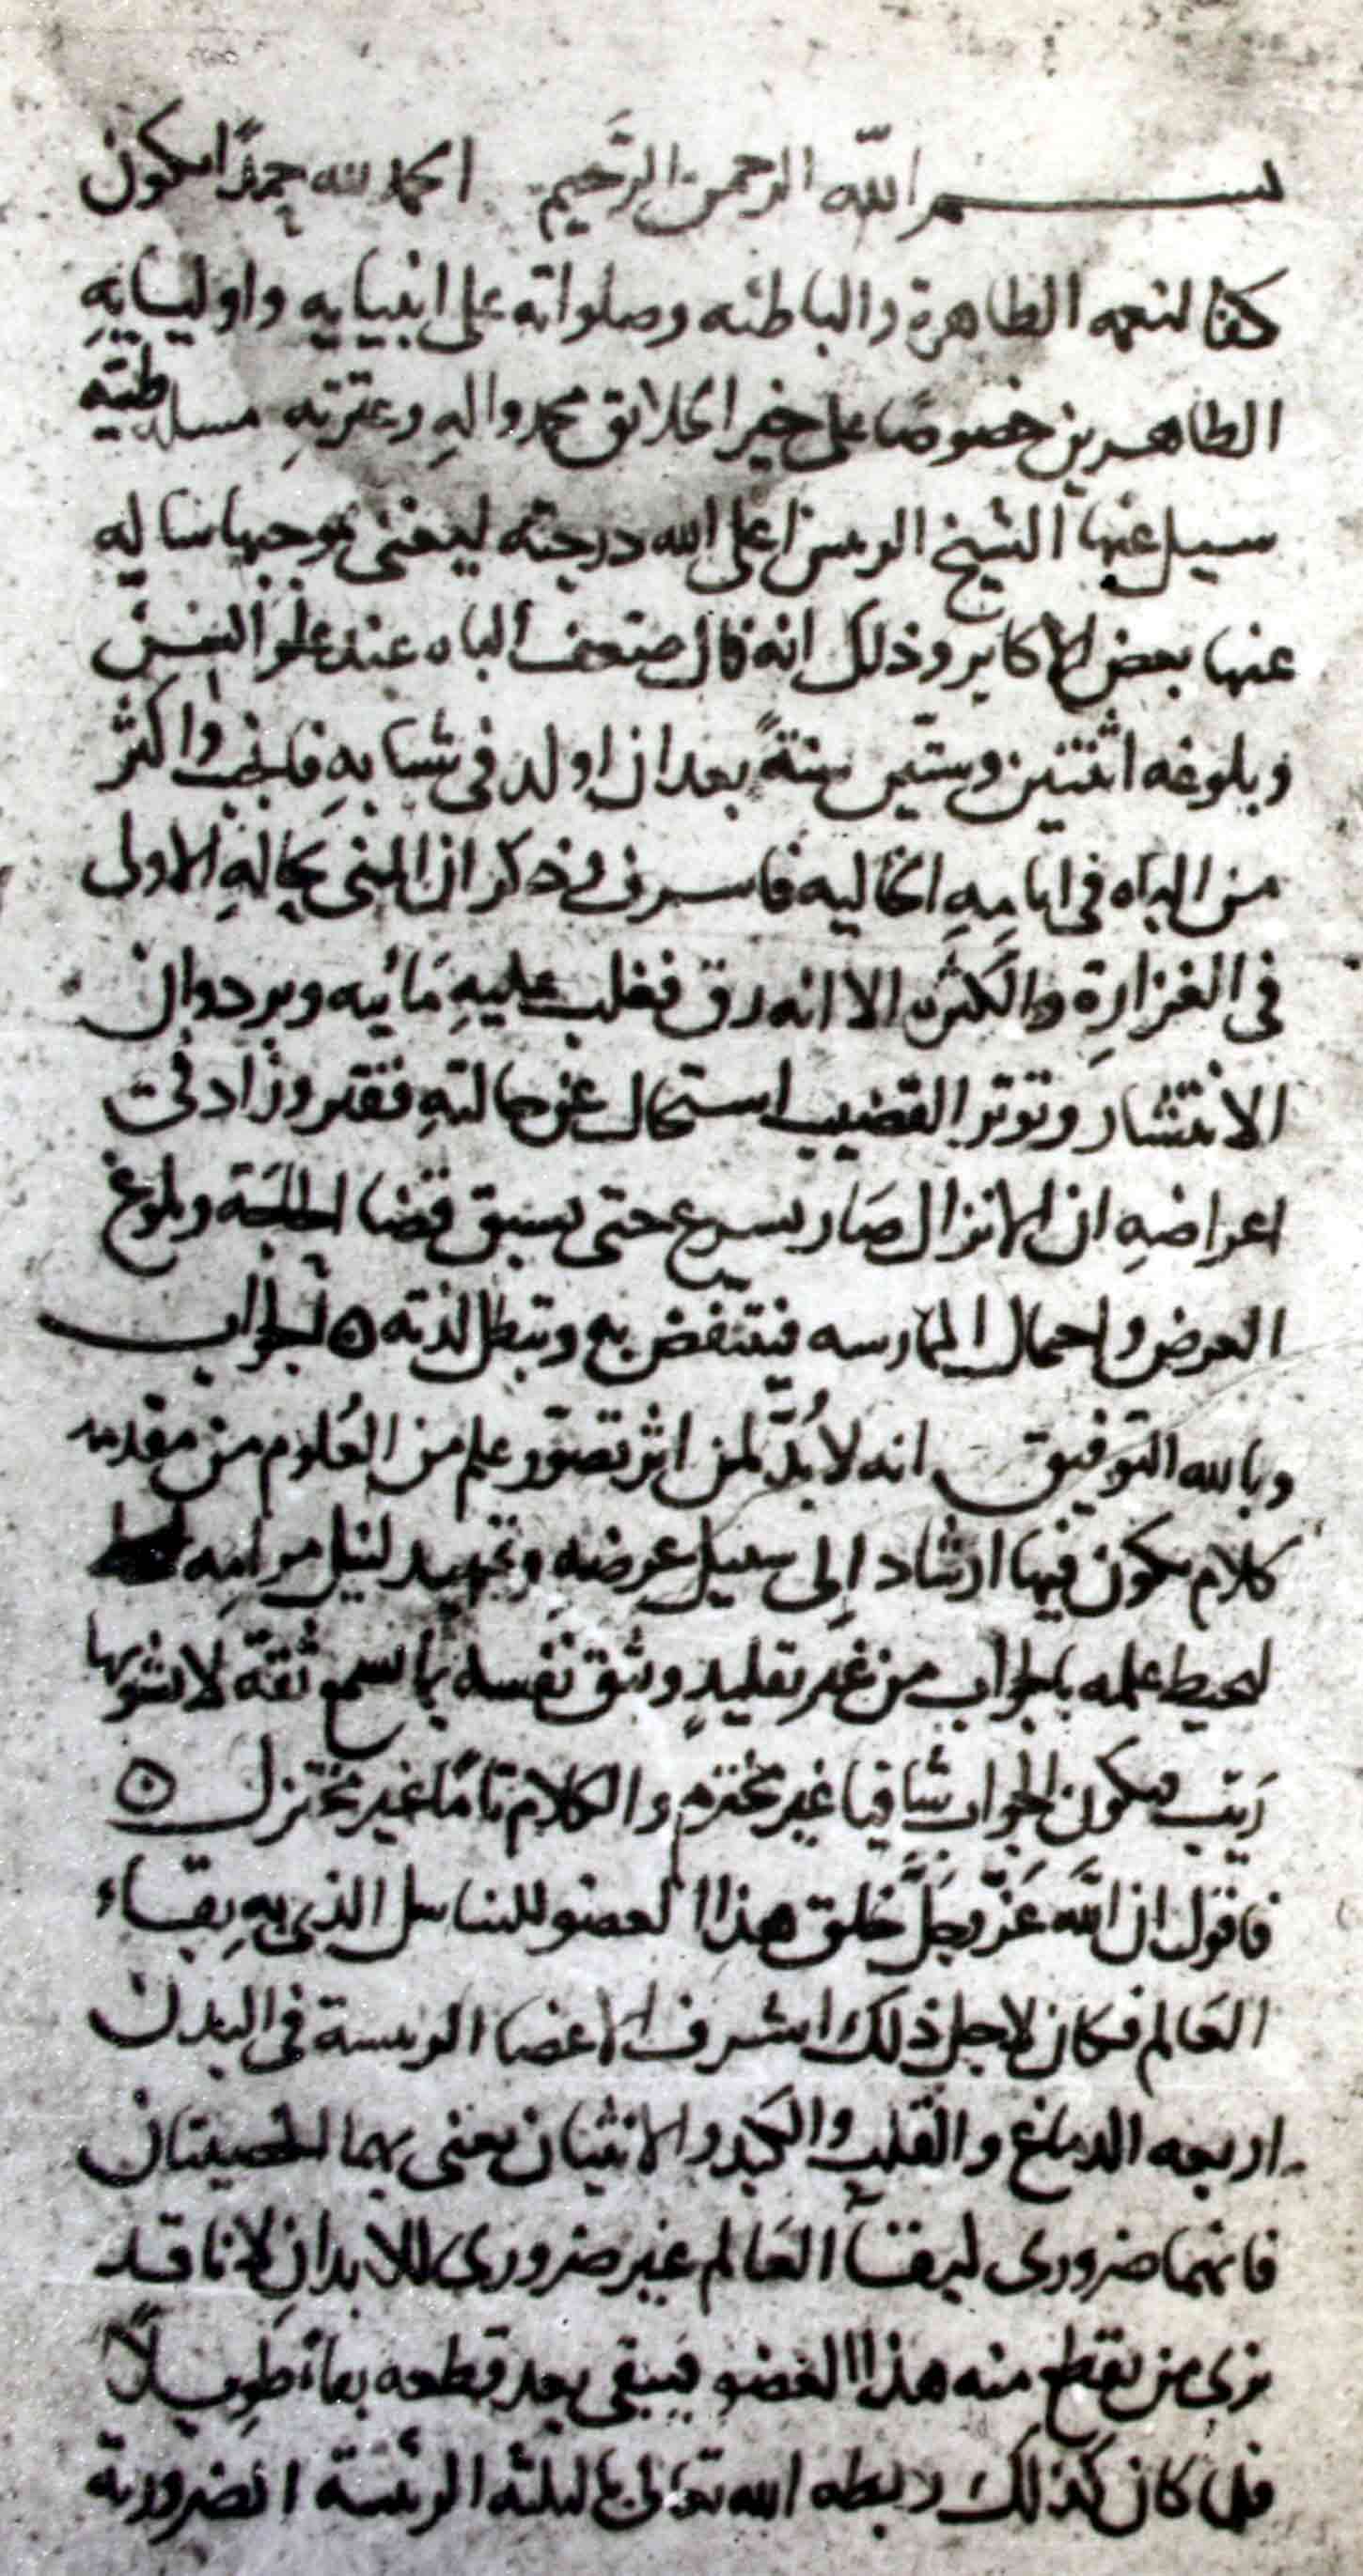 بسم الله الرحمن الرحيم الحمد لله حمدًا يكون
كفا لنعمه الظاهرة والباطنه وصلواته على انبيايه واوليايهِ
الطاهرين خصوصًا على خير الخلائق محمد والهِ وعترتهِ مسالة طبيّه
سيل عنها الشيخ الرييس اعلى الله درجته ليعنى بوجبها ساله
عنها بعض الاكابر وذلك انه قال ضعف الباه عند علو السن
وبلوغه اثنتين وستين سنةً بعد ان اولد في شبابهِ فانجب واكثر
من الباه في ايامهِ الخاليه فاسرف وذكر ان المنى بحالهِ الاولى
في الغزارةِ والكَثره الا انه رق فغلب عليهِ مَائيه وبرد وان
الانتشار وتوتر القضيب استحال عن حالتهِ ففتر وزاد في
اعراضهِ ان الانزال صَار يسرع حتى يسبق قضا الحاجَة وبلوغ
الغرض واحمال الممارسه فينتفض به وتبطل لذته ٥ الجواب
وبالله التوفيق انه لا بُدّ لمن اثر تصوّر علم من العُلوم من مقدمه
كلام يكون فيها ارشاد اِلى سبيل غرضهِ وتمهيد لنيل مرامِه
ليحيط علمه بالجواب من غير تقليدٍ وتثق نفسه بما يسمع ثقةً لا يشوبها
رَيب فيكون الجواب شافيا غير مخترم والكلام تامًا غير مختزل ٥
فاقول ان الله عَزّ وجَلّ خلق هذا العضو للتناسل الذي بهِ بقاء
العَالم فكان لاجل ذلك اشرف الاعضا الرييسة في البدن
اربعه الدماغ والقلب والكَبد والانثيان نعنى بهما الخصيتان
فانهما ضروري لبقآ العَالم غير ضروري للابدانِ لانا قد
نرى من يقطع منه هذا العضو فيبقى بعد قطعه بقاءً طويلاً
فلما كان كذلك ربطه الله تعالى بالثلثه الرئيسة الضرورية